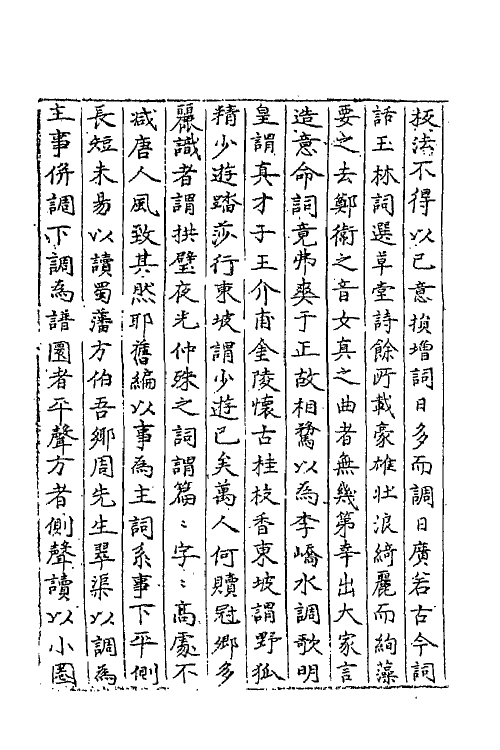 按法不得以已意損增詞日多而調日廣若古今詞
話玉林詞選草堂詩餘所載豪雄壯浪綺麗而絢藻
要之去鄭衛之音女真之曲者無幾第幸出大家言
造意命詞竟弗奭于正故相驚以為李嶠水調歌明
皇謂真才子王介甫金陵懷古桂枝香東坡謂野狐
精少遊踏莎行東坡謂少遊已矣萬人何贖冠鄉多
麗識者謂拱璧夜光仲殊之詞謂篇〻字〻高處不
减唐人風致其然耶舊編以事為主詞系事下平側
長短未易以讀蜀藩方伯吾鄉周先生翠渠以調為
主事併調下調為譜圜者平聲方者側聲讀以小圈